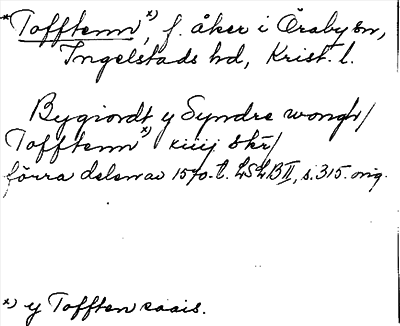 *Tofftenn*), f. åker i Öraby sn,
Ingelstads hd, Krist. l.
Bygiordt y Syndre wongh/
Tofftenn*) xiiij skr/
förra delen av 1570-t. LSLB II, s. 315. orig.
*) y Tofften saais.